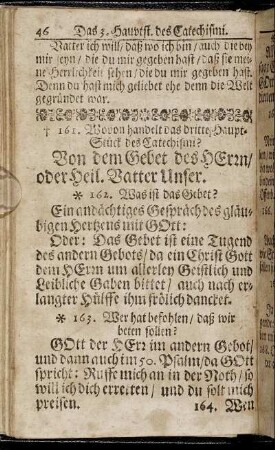 46 Das 3. Hauptst. des Catechismi.
Vatter ich will / daß wo ich bin / auch die bey
mir seyn / die du mir gegeben hast / daß sie mei-
ne Herrlichkeit sehen / die du mir gegeben hast.
Denn du hast mich geliebet ehe denn die Welt
gegründet war.
† 161. Wovon handelt das dritte Haupt-
Stück des Catechismi?
Von dem Gebet des HErrn /
oder Heil. Vatter Unser.
* 162. Was ist das Gebet?
Ein andächtiges Gespräch des gläu-
bigen Hertzens mit GOtt:
Oder: Das Gebet ist eine Tugend
des andern Gebots / da ein Christ Gott
dem HErrn um allerley Geistlich und
Leibliche Gaben bittet / auch nach er-
langter Hülffe ihm frölich dancket.
* 163. Wer hat befohlen / daß wir
beten sollen?
GOtt der HErr im andern Gebot /
und dann auch im 50. Psalm / da GOtt
spricht: Ruffe mich an in der Noth / so
will ich dich erretten / und du solt mich
preisen. 164. Wen